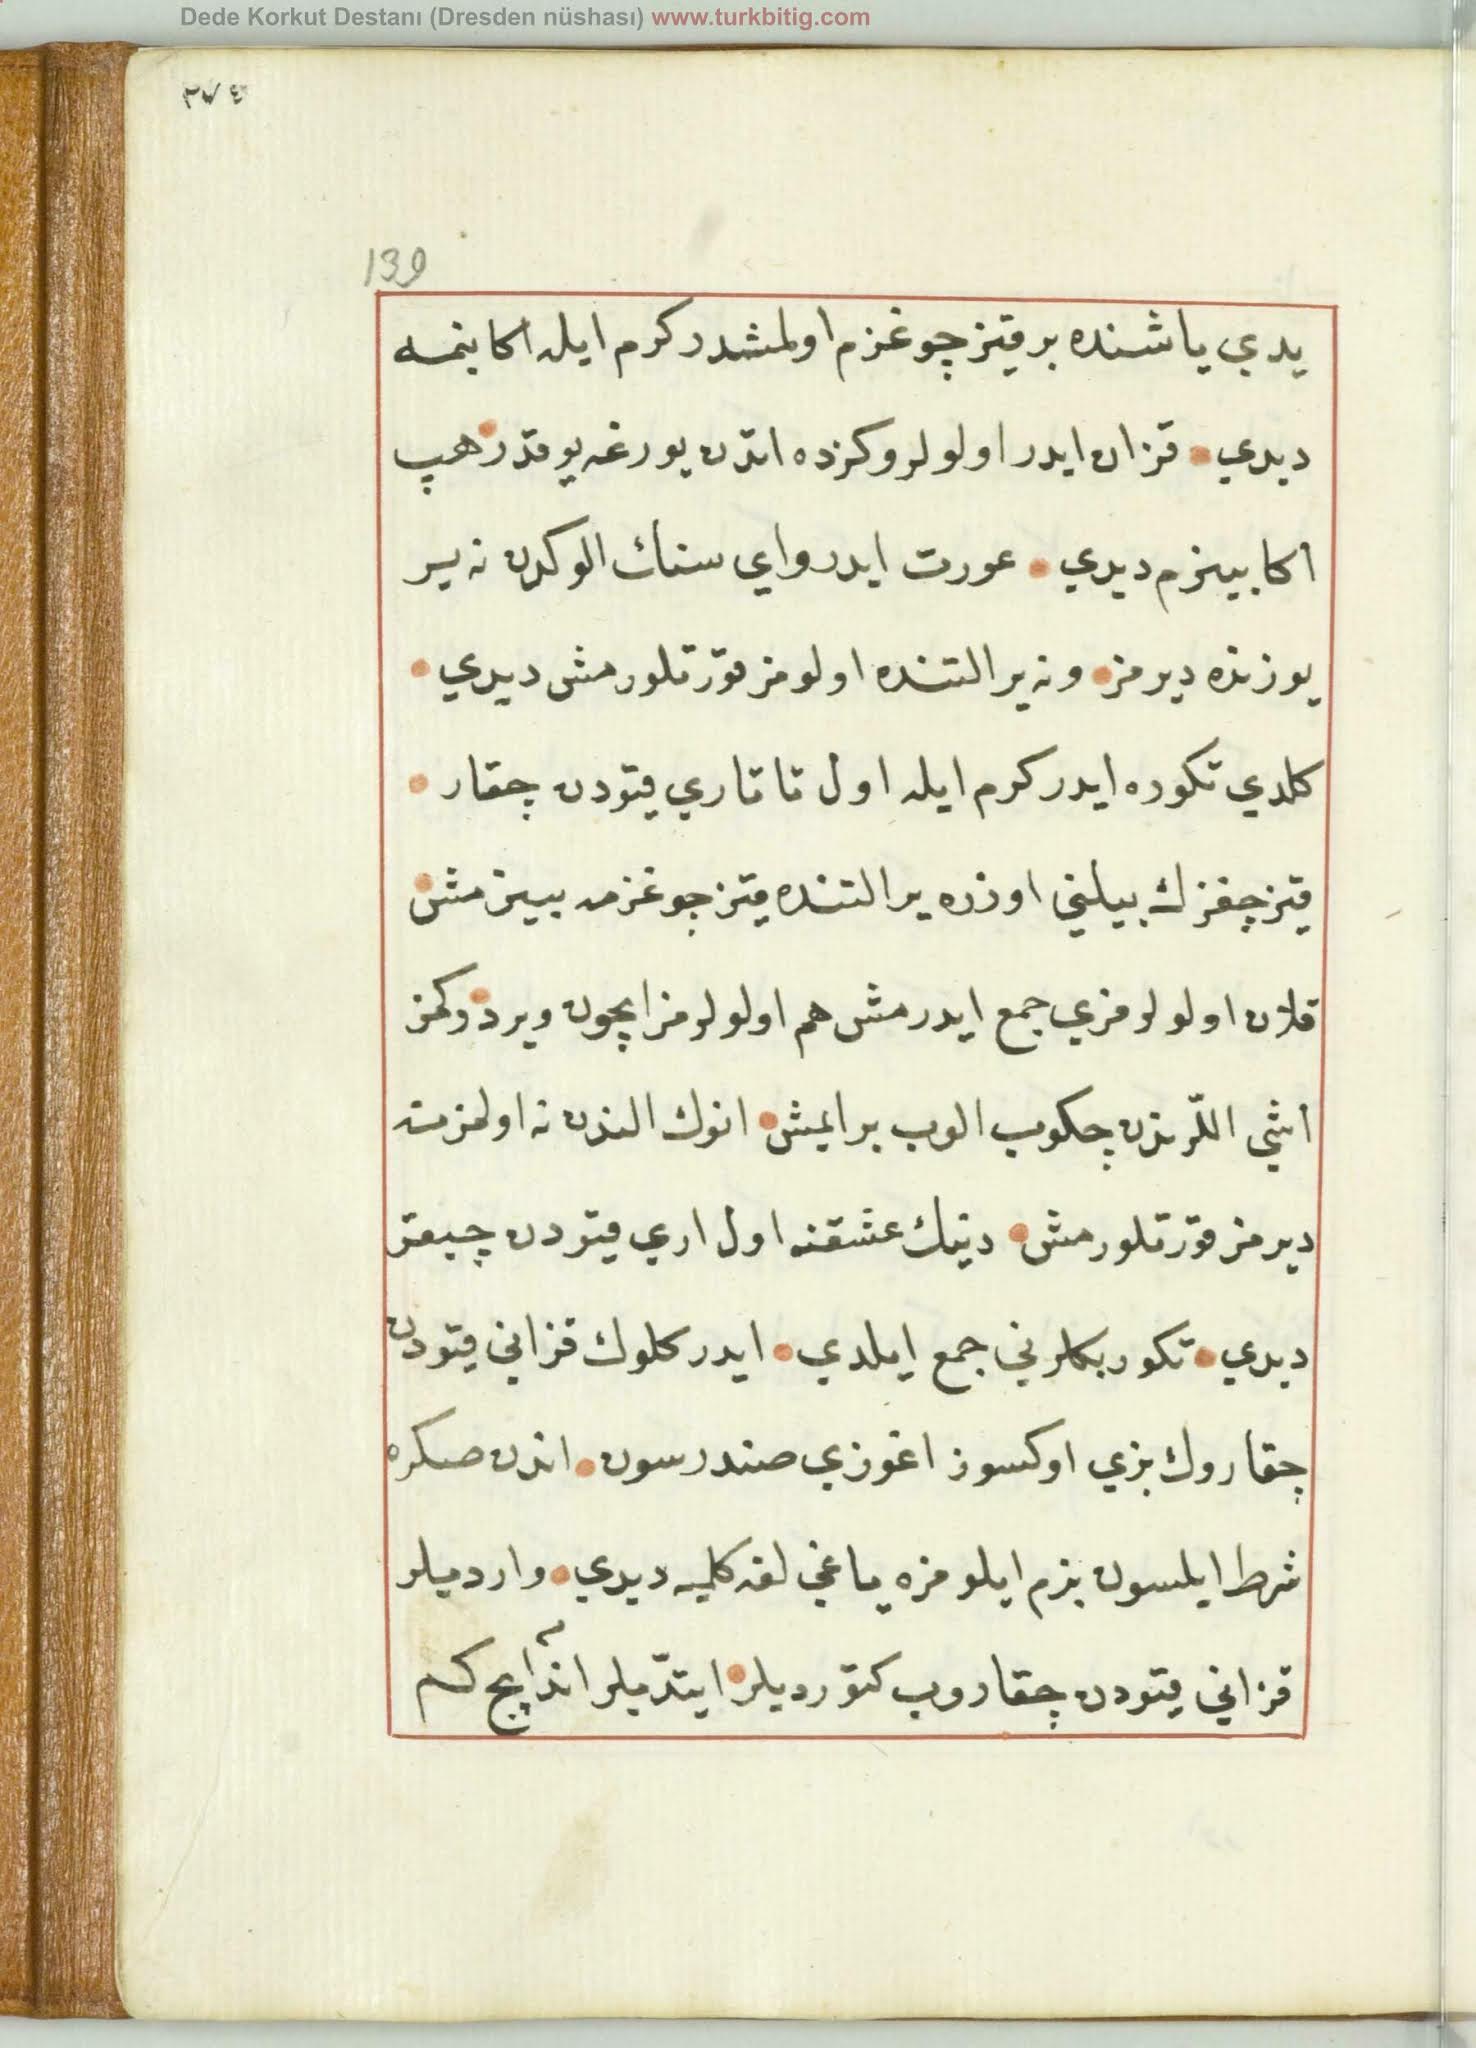 Dede Korkut Destanı (Dresden nüshası) www.turkbitig.com
٢٧٤
139
يدي ياشنده بر قيز جوغزم اولمشدر كرم ايله اكا بنمه
ديدي قزان ايدر اولولروكزده اندن يورغه يوقدر هپ
اكا بينرم ديدي عورت ايدر واي سنك الوكدن نه ير
يوزنده ديرمز ونه ير التنده اولومز قورتلورمش ديدي
كلدي تكوره ايدر كرم ايله اول تاتاري قيودن چقار
قيز جغزك بيلني اوزره ير التنده قيز جوغزمه بينرمش
قلان اولولرمزي جمع ايدرمش هم اولولرمز ايچون ويردوكمز
اشي اللرندن چكوب الوب ير ايمش انوك الندن نه اولمزمنه
ديرمز قورتلورمش دينك عشقنه اول اري قيودن چيقر
ديدي تكور بكلرني جمع ايلدي ايدر كلوك قزاني قيودن
چقاروك بزي اوكسوز اغوزي صندرسون اندن صكره
شرط ايلسون بزم ايلومزه ياغي لغه كلميه ديدي وارديلر
قزاني قيودن چقاروب كتورديلر ايتديلر اند ايچ كم